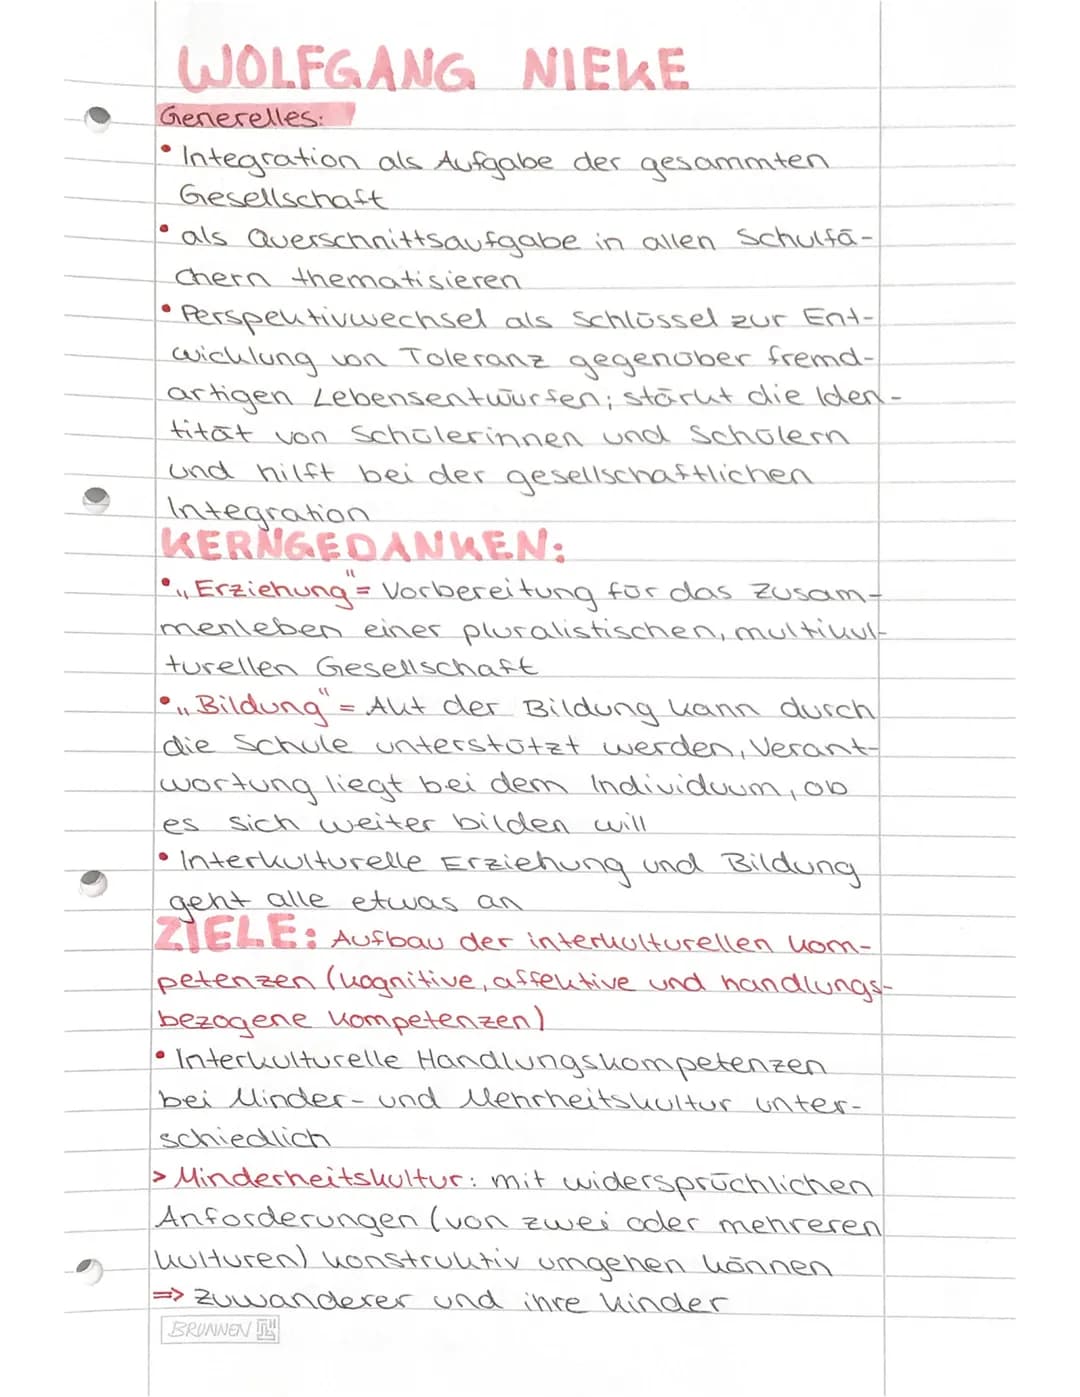 WOLFGANG NIEKE
Generelles:
• Integration als Aufgabe der gesammten
Gesellschaft
• als Querschnittsaufgabe in allen Schulfä-
chern thematisieren
• Perspektivwechsel als Schlüssel zur Ent-
wicklung von Toleranz gegenüber fremd-
artigen Lebensentwürfen; stärkt die Iden-
tität von Schülerinnen und Schülern
und hilft bei der gesellschaftlichen
Integration
KERNGEDANKEN:
• „Erziehung" = Vorbereitung für das Zusam-
menleben einer pluralistischen, multikul-
turellen Gesellschaft
• „Bildung" = Akt der Bildung kann durch
die Schule unterstützt werden, Verant-
wortung liegt bei dem Individuum, ob
es sich weiter bilden will
• Interkulturelle Erziehung und Bildung
geht alle etwas an
ZIELE: Aufbau der interkulturellen Kom-
petenzen (kognitive, affektive und handlungs-
bezogene Kompetenzen)
• Interkulturelle Handlungskompetenzen
bei Minder- und Mehrheitskultur unter-
schiedlich
> Minderheitskultur: mit widersprüchlichen
Anforderungen (von zwei oder mehreren
Kulturen) konstruktiv umgehen können
=> Zuwanderer und ihre Kinder
BRUNNEN